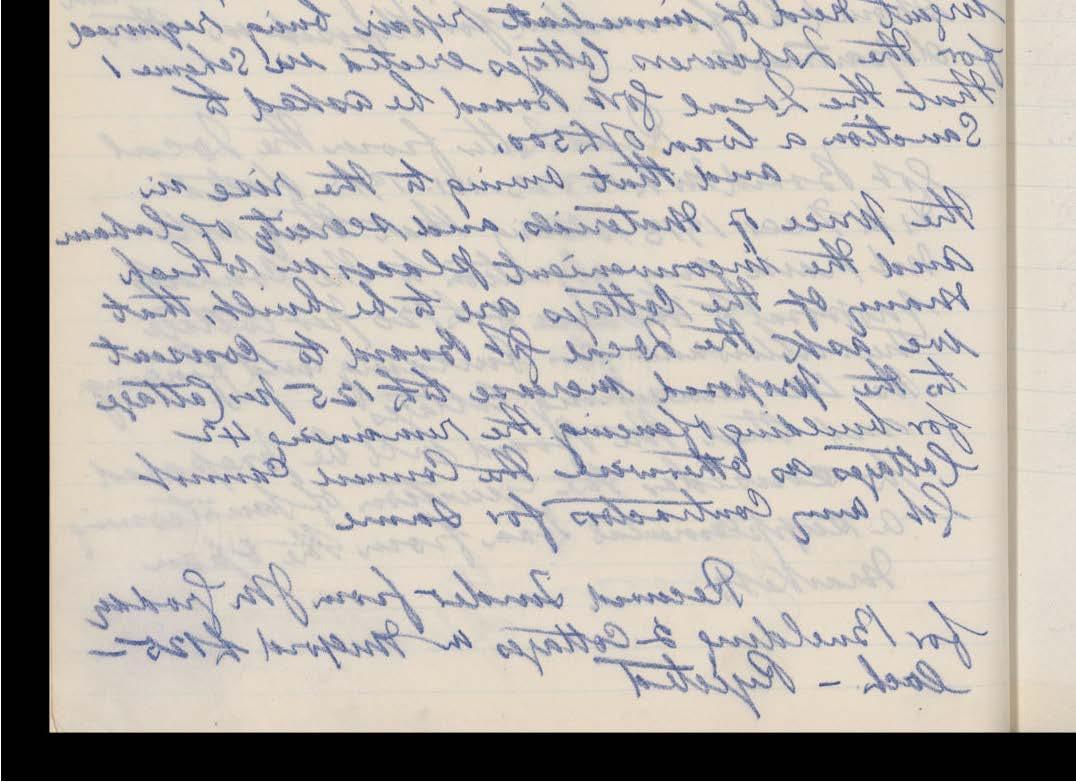 urgent need of immediate repair being required
for the Labourers Cottages erected in Scheme 1
that the Local Govt Board be asked to
Sanction a loan of £500.
and that owing to the rise in
the price of Materials, and scarcity of labour
and the inconvenient places in which
many of the Cottages are to be built, that
we ask the Local Govt Board to Consent
to the proposed increase to £125 per Cottage
for building & fencing the remaining 42
Cottages as otherwise the Council Cannot
Get any Contractors for Same
Received Tender from Jn
for Building 2 Cottages in £125 –
Each – Rejected